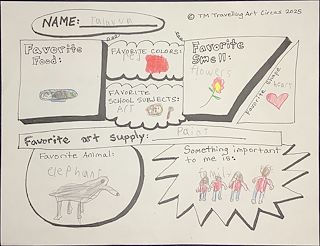 © TM Travelling Art Circus 2025
NAME:
Favorite Food:
FAVORITE COLORS:
red
Favorite Smell:
flowers
FAVORITE SCHOOL SUBJECTS:
Art
Favorite Shape
heart
Favorite art supply: Paint
Favorite Animal:
elephant
Something important to me is:
family